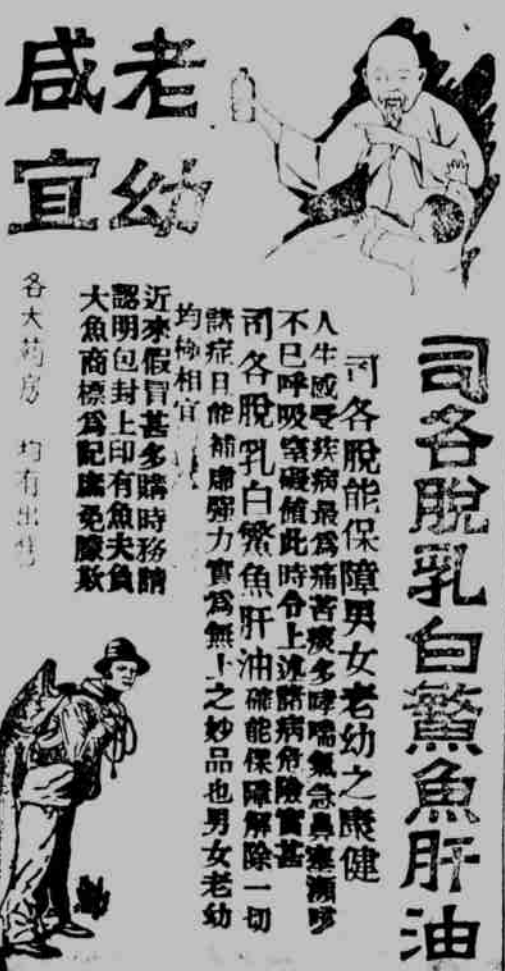 老幼
咸宜
司各脫乳白鰵魚肝油
司各脫能保障男女老幼之康健
人生感受疾病最爲痛苦痰多哮喘氣急鼻塞
不已呼吸窒礙値此時令上述諸病危險實甚
司各脫乳白鰵魚肝油確能保障解除一切
諸症且能補虛强力實爲無上之妙品也男女老幼
均極相宜
近來假冒甚多購時務請
認明包封上印有魚夫負
大魚商標爲記庶免朦欺
各大药房 均有出售